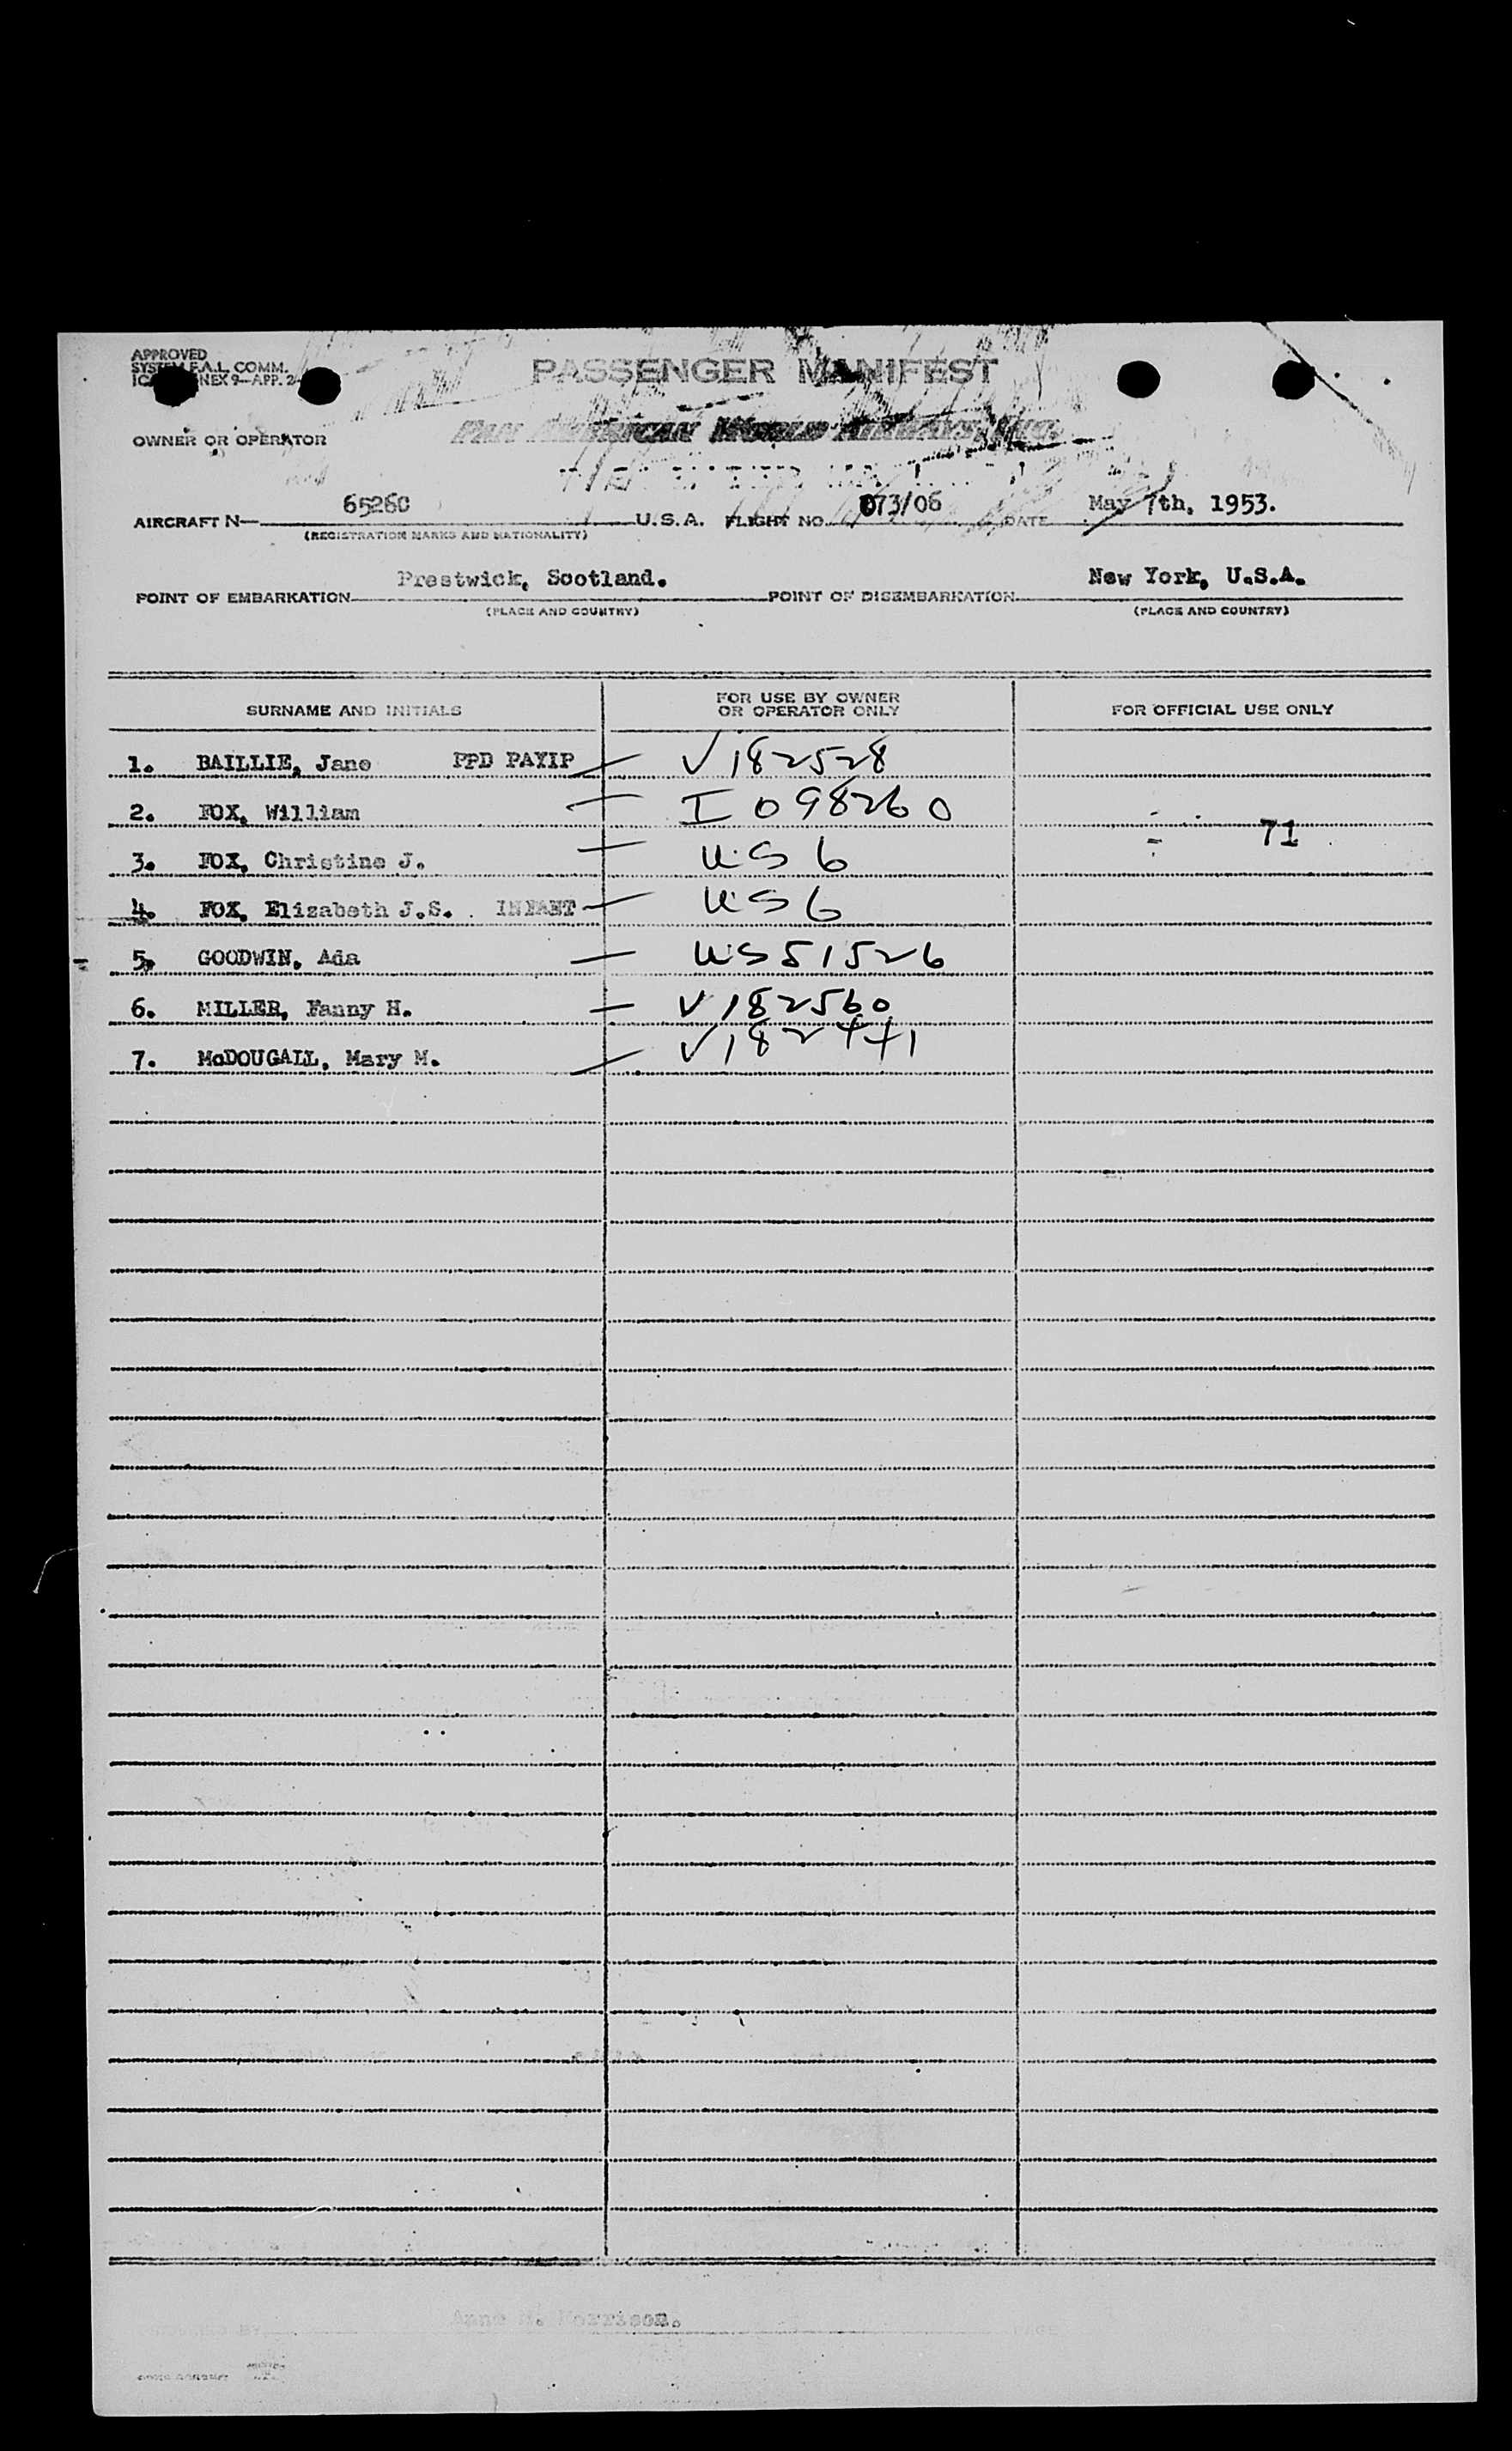 APPROVED
SYSTEM F.A.L. COMM.
NEX 9—APP. 2
PASSENGER MANIFEST
OWNER OR OPERATOR PAN AMERICAN WORLD AIRWAYS, INC.
AIRCRAFT N— 65260 U.S.A. FLIGHT NO. 073/06 DATE May 7th, 1953.
(REGISTRATION MARKS AND NATIONALITY)
POINT OF EMBARKATION Prestwick, Scotland. POINT OF DISEMBARKATION New York, U.S.A.
(PLACE AND COUNTRY) (PLACE AND COUNTRY)
SURNAME AND INITIALS FOR USE BY OWNER OR OPERATOR ONLY FOR OFFICIAL USE ONLY
1. BAILLIE, Jane PPD PAYIP — V182528
2. FOX, William — I 098260
71
3. FOX, Christine J. — US 6
4. FOX, Elizabeth J.S. INFANT — US 6
5. GOODWIN, Ada — US 51526
6. MILLER, Fanny H. — V 182560
7. McDOUGALL, Mary M. — V182441
Anne M. Morrison.